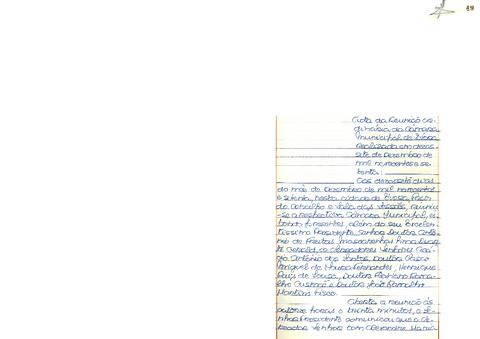 49
Acta da Reunião or-
dinária da Câmara
Municipal de Évora
realizada em dezas-
sete de Dezembro de
mil novecentos e se-
tenta.
Aos dezassete dias
do mês de Dezembro de mil novecentos
e setenta, nesta cidade de Évora, Paços
do Concelho e Sala das Sessões, reuniu
-se a respectiva Câmara Municipal, es-
tando presentes, além do seu Excelen-
tíssimo Presidente, Senhor Doutor
de Freitas Mascarenhas
os Vereadores Senhores
António dos Santos, Doutor
Miguel de Moura Fernandes, Henrique
de Sousa, Doutor
e Doutor José Carvalho
Martins
Aberta a reunião às
horas e trinta minutos, o Se-
nhor Presidente comunicou que o Ve-
reador Senhor Alexandre Maria